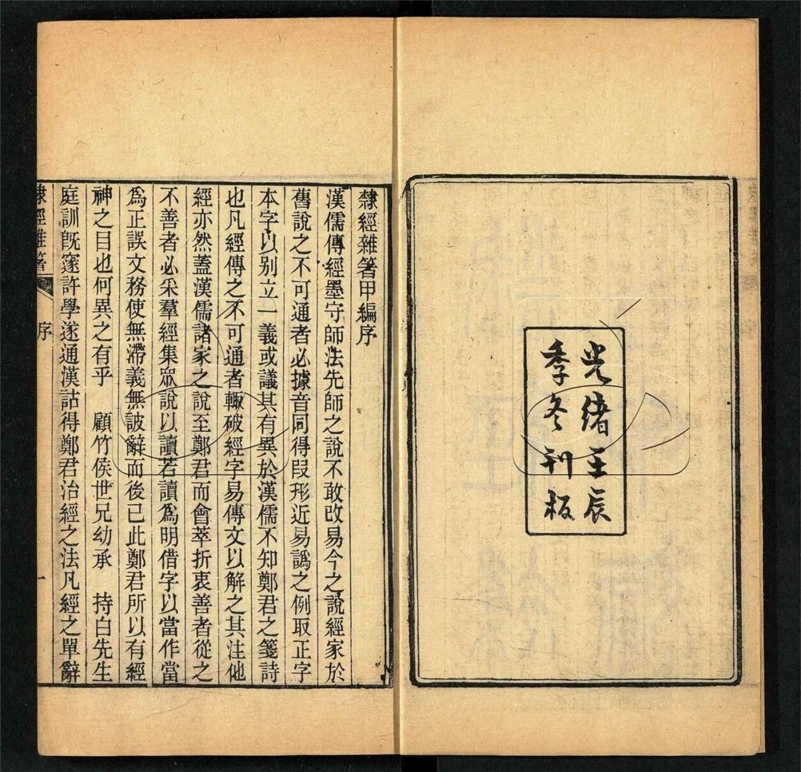 光緒壬辰
季冬刊板
隸經雜箸甲編序
漢儒傳經墨守師法先師之說不敢改易今之說經家於
舊說之不可通者必據音同得叚形近易譌之例取正字
本字以别立一義或議其有異於漢儒不知鄭君之箋詩
也凡經傳之不可通者輒破經字易傳文以解之其注他
經亦然蓋漢儒諸家之說至鄭君而會萃折衷善者從之
不善者必采羣經集眾說以讀若讀爲明借字以當作當
爲正誤文務使無滯義無詖辭而後已此鄭君所以有經
神之目也何異之有乎　顧竹侯世兄幼承　持白先生
庭訓旣邃許學遂通漢詁得鄭君治經之法凡經之單辭
隸經雜箸　序　一